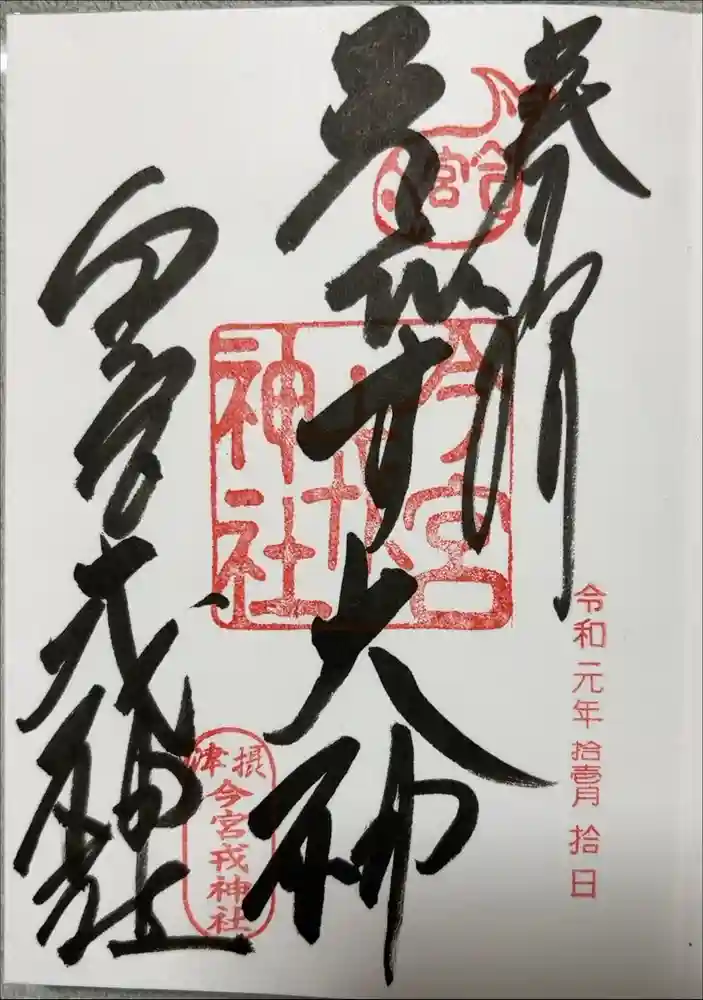 奉拝
今宮
ゑびす大神
今宮戎神社
令和元年拾壹月拾日
今宮戎神社
摂津
今宮戎神社